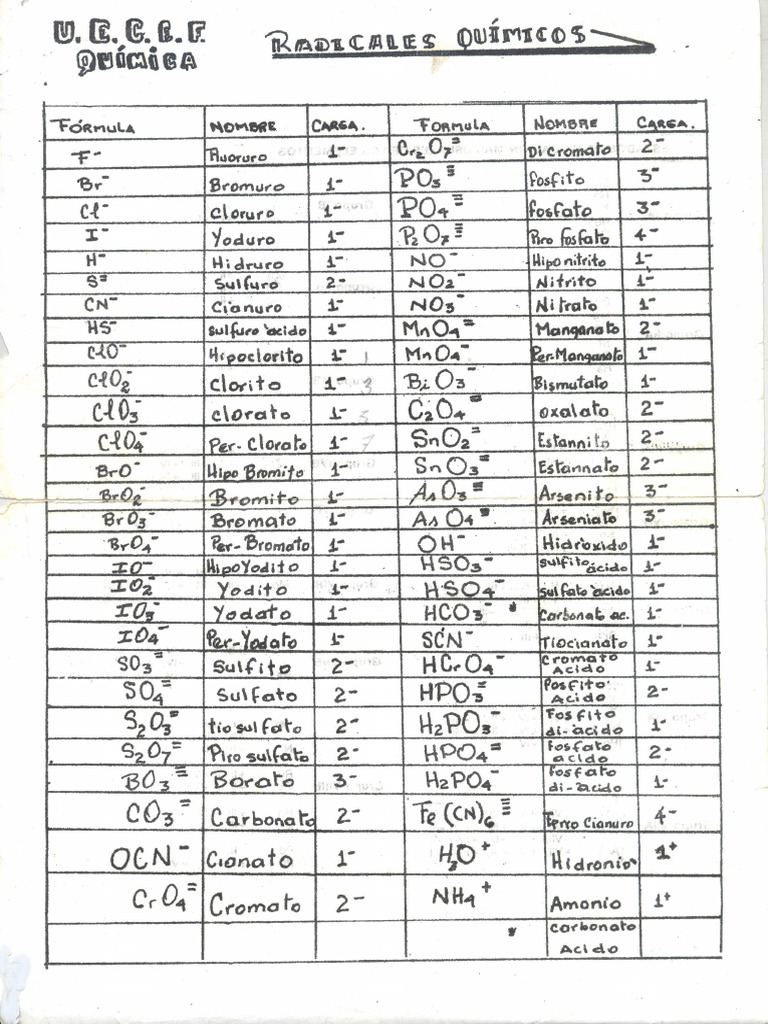 U.E.C.E.F.
QUÍMICA
RADICALES QUÍMICOS
FÓRMULA NOMBRE CARGA. FORMULA NOMBRE CARGA.
F⁻ Fluoruro 1- Cr₂O₇⁼ Dicromato 2-
Br⁻ Bromuro 1- PO₃≡ fosfito 3-
Cl⁻ Cloruro 1- PO₄≡ fosfato 3-
I⁻ Yoduro 1- P₂O₇ Piro fosfato 4-
H⁻ Hidruro 1- NO⁻ Hiponitrito 1-
S⁼ Sulfuro 2- NO₂⁻ Nitrito 1-
CN⁻ Cianuro 1- NO₃⁻ Nitrato 1-
HS⁻ sulfuro ácido 1- MnO₄⁼ Manganato 2-
ClO⁻ Hipoclorito 1- 1 MnO₄⁻ Per-Manganato 1-
ClO₂⁻ Clorito 1- 3 BiO₃⁻ Bismutato 1-
ClO₃⁻ clorato 1- 5 C₂O₄⁼ oxalato 2-
ClO₄⁻ Per-Clorato 1- 7 SnO₂⁼ Estannito 2-
BrO⁻ Hipo Bromito 1- SnO₃⁼ Estannato 2-
BrO₂⁻ Bromito 1- AsO₃≡ Arsenito 3-
BrO₃⁻ Bromato 1- AsO₄≡ Arseniato 3-
BrO₄⁻ Per-Bromato 1- OH⁻ Hidróxido 1-
IO⁻ HipoYodito 1- HSO₃⁻ sulfito ácido 1-
IO₂⁻ Yodito 1- HSO₄⁻ sulfato ácido 1-
IO₃⁻ Yodato 1- HCO₃⁻ * Carbonato ac. 1-
IO₄⁻ Per-Yodato 1- SCN⁻ Tiocianato 1-
SO₃⁼ Sulfito 2- HCrO₄⁻ Cromato Acido 1-
SO₄⁼ Sulfato 2- HPO₃⁼ Fosfito Acido 2-
S₂O₃⁼ tio sulfato 2- H₂PO₃⁻ Fosfito di-acido 1-
S₂O₇⁼ Piro sulfato 2- HPO₄⁼ fosfato acido 2-
BO₃≡ Borato 3- H₂PO₄⁻ fosfato di-ácido 1-
CO₃⁼ Carbonato 2- Fe(CN)₆ Ferro Cianuro 4-
OCN⁻ Cianato 1- H₃O⁺ Hidronio 1+
CrO₄⁼ Cromato 2- NH₄⁺ Amonio 1+
* carbonato Acido